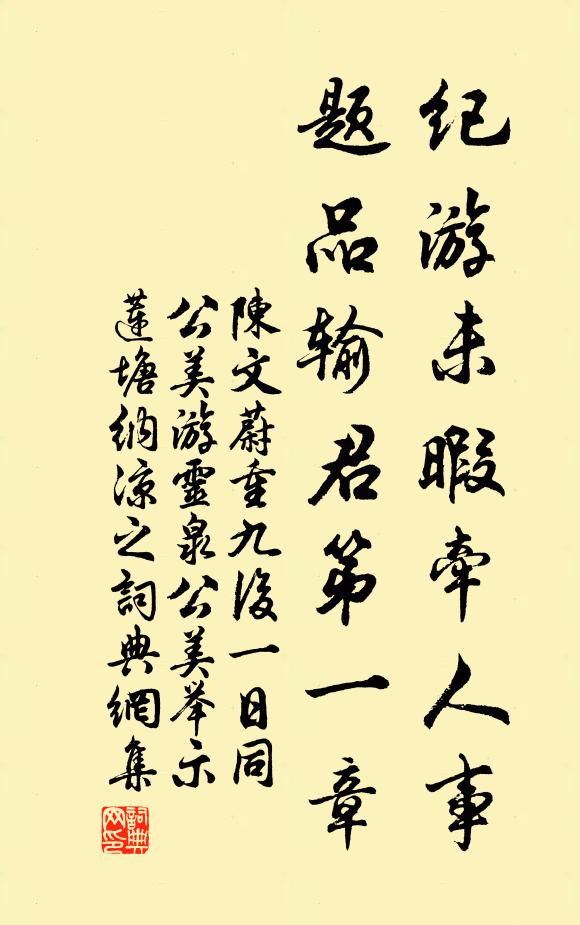 纪游未暇牵人事
题品输君第一章
陳文蔚重九後一日同
公美游靈泉公美举示
蓮塘纳凉之詞典網集
詞典
网印